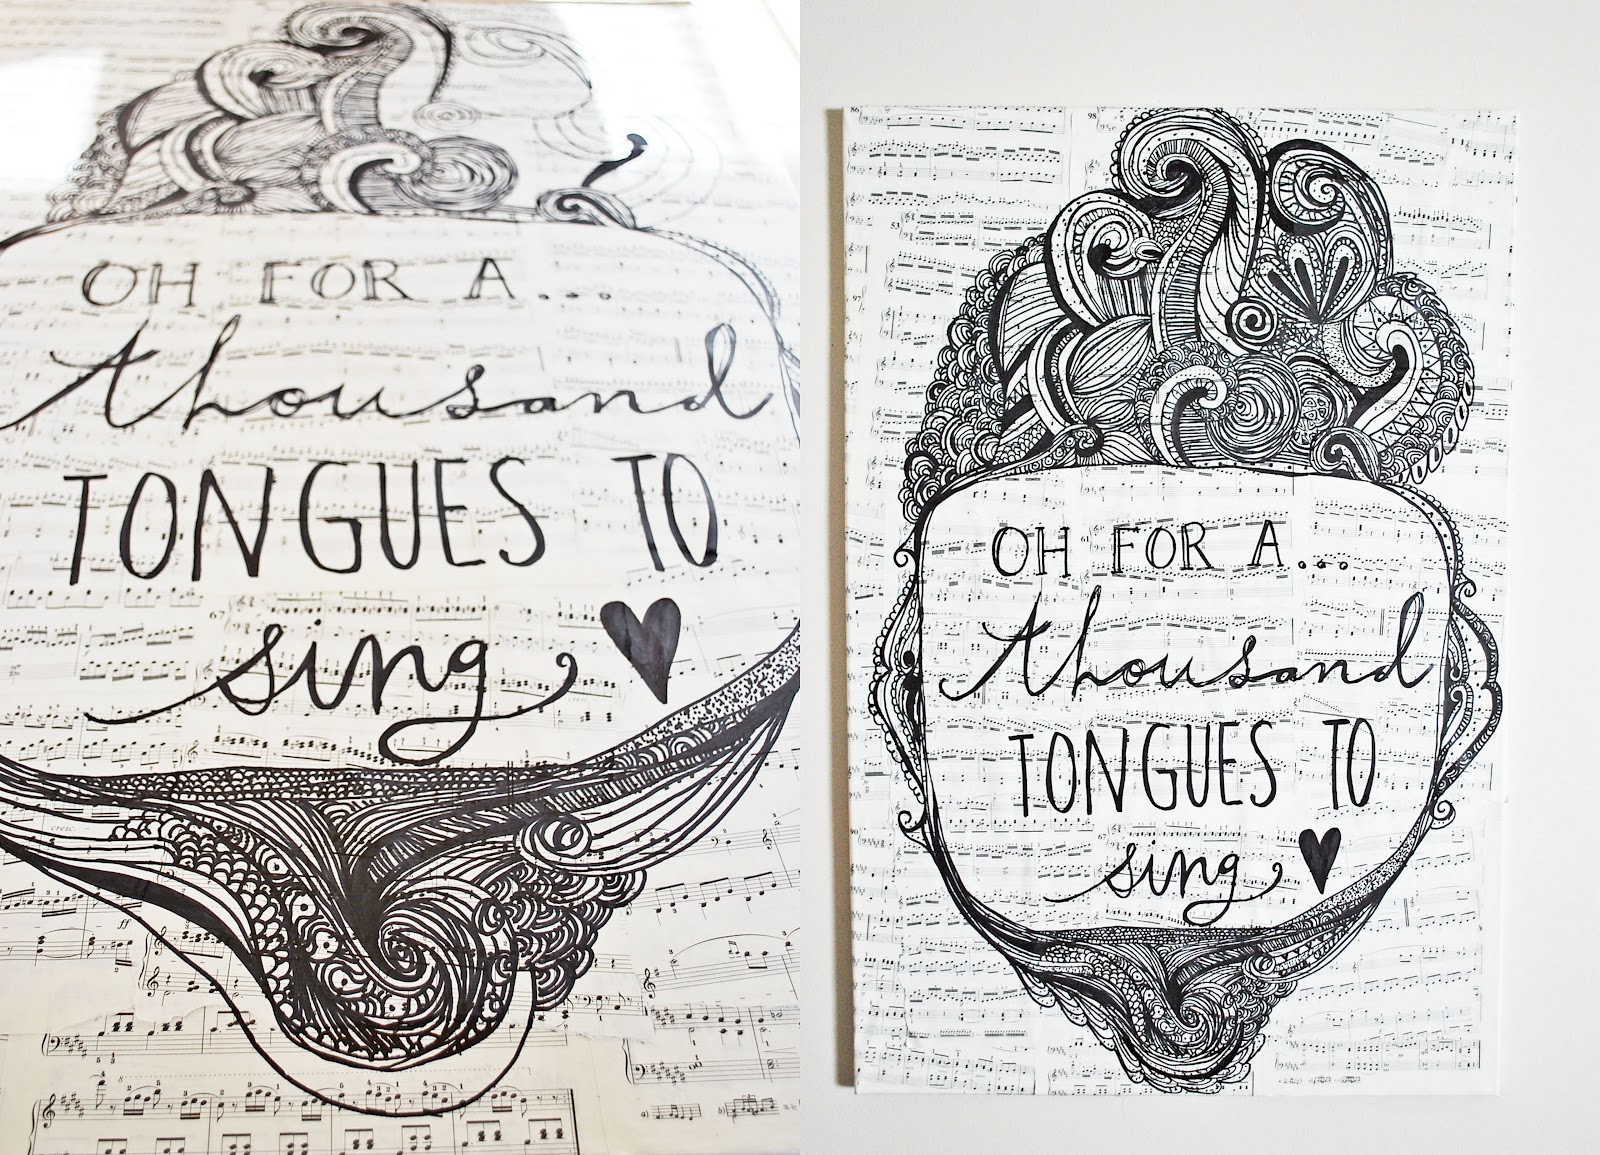 OH FOR A...
thousand
TONGUES TO
sing
cresc.
ff
OH FOR A...
thousand
TONGUES TO
sing